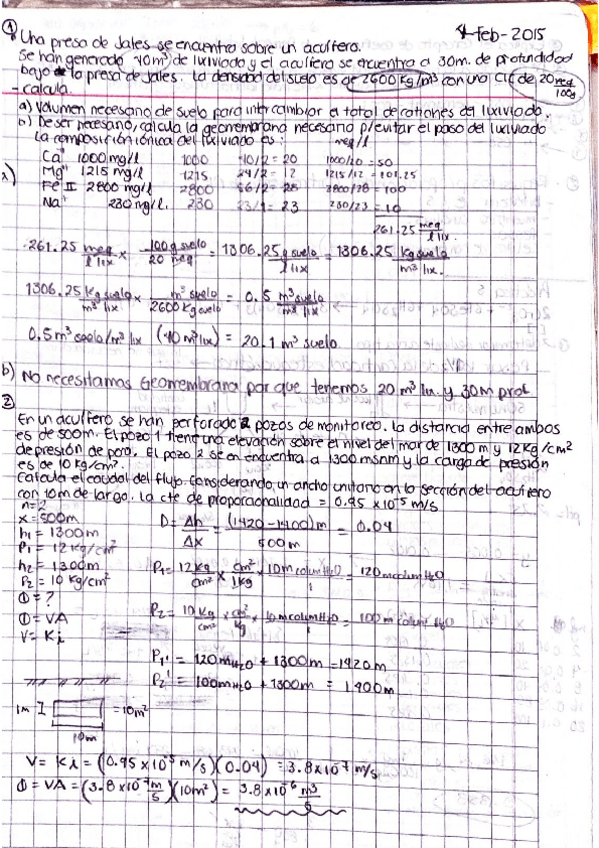 4-Feb-2015
① Una presa de Jales se encuentra sobre un acuífero.
Se han generado 40m³ de lixiviado y el acuífero se encuentra a 30m. de profundidad
bajo la presa de jales. La densidad del suelo es de 2600 kg/m³ con una CIC de 20 meq/100g
- calcula.
a) Volumen necesario de suelo para intercambiar el total de cationes del lixiviado.
b) De ser necesario, calcula la geomembrana necesaria p/evitar el paso del lixiviado
La composición iónica del lixiviado es: meq/l
a) Ca 1000 mg/l 1000 40/2 = 20 1000/20 = 50
Mg 1215 mg/l 1215 24/2 = 12 1215/12 = 101.25
Fe II 2800 mg/l 2800 56/2 = 28 2800/28 = 100
Na 230 mg/l. 230 23/1 = 23 230/23 = 10
261.25 meq/l lix
261.25 meq/l lix × 100g suelo/20 meq = 1306.25 g suelo/l lix = 1306.25 kg suelo/m³ lix.
1306.25 kg suelo/m³ lix × m³ suelo/2600 kg suelo = 0.5 m³ suelo/m³ lix
0.5 m³ suelo/m³ lix (40 m³ lix) = 20.1 m³ suelo
b) No necesitamos Geomembrana porque tenemos 20 m³ lix. y 30m prof
② En un acuífero se han perforado 2 pozos de monitoreo. La distancia entre ambos
es de 500m. El pozo 1 tiene una elevación sobre el nivel del mar de 1300 m y 12 Kg/cm²
de presión de poro. El pozo 2 se encuentra a 1300 msnm y la carga de presión
es de 10 kg/cm².
Calcula el caudal del flujo. considerando un ancho unitario en la sección del acuífero
con 10m de largo. La cte de proporcionalidad = 0.95 x10⁻⁵ m/s
n = 2
x = 500m D = Δh/Δx = (1420-1400)m/500m = 0.04
h₁ = 1300m
P₁ = 12 kg/cm² P₁ = 12kg/cm² × cm²/1kg × 10m colum H₂O/1 = 120m colum H₂O
h₂ = 1300m
P₂ = 10 kg/cm²
Φ = ? P₂ = 10kg/cm² × cm²/kg × 10m colum H₂O/1 = 100m colum H₂O
Φ = VA
V = Ki
P₁' = 120mH₂O + 1300m = 1420m
P₂' = 100mH₂O + 1300m = 1400m
1m = 10m²
10m
V = Ki = (0.95 x10⁻⁵ m/s)(0.04) = 3.8x10⁻⁷ m/s
Φ = VA = (3.8 x10⁻⁷ m/s)(10m²) = 3.8x10⁻⁶ m³/s